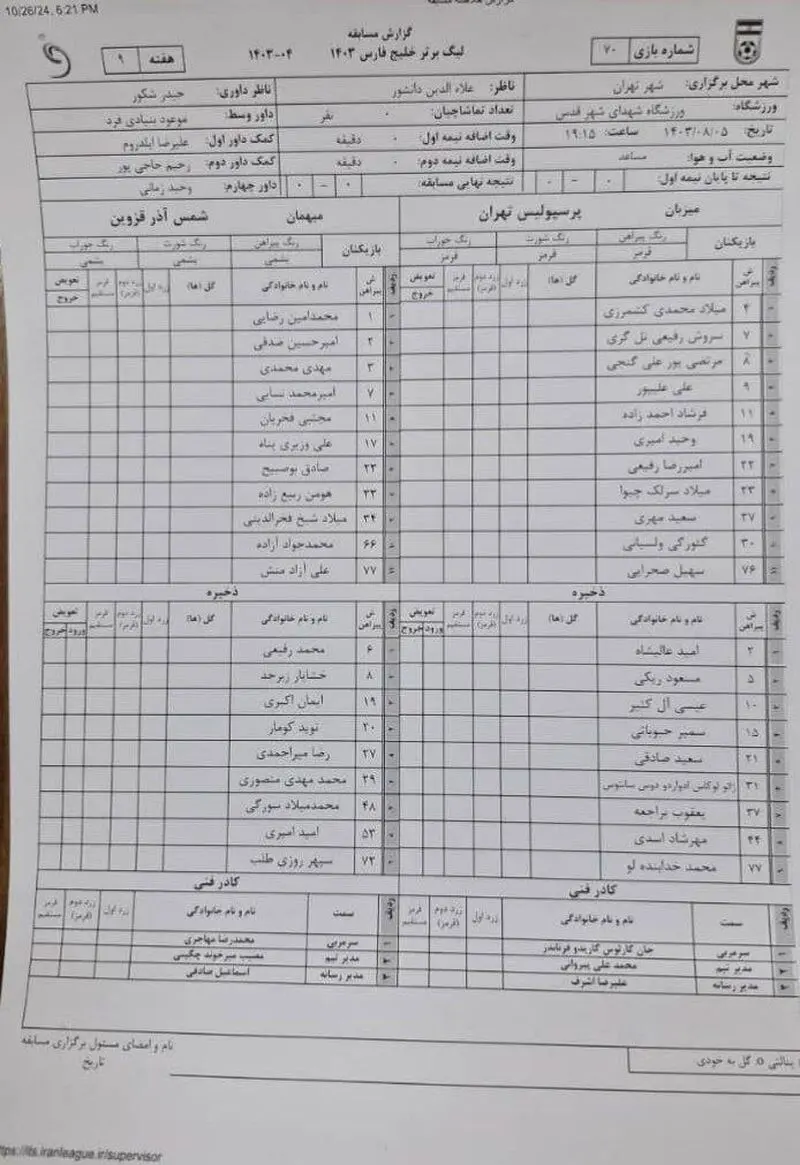 10/26/24, 6:21 PM
گزارش مسابقه
لیگ برتر خلیج فارس ۱۴۰۳ ۰۴-۱۴۰۳
شماره بازی ۷۰
هفته ۹
شهر محل برگزاری: شهر تهران
ناظر: علاء الدین دانشور
ناظر داوری: حیدر شکور
ورزشگاه: ورزشگاه شهدای شهر قدس
تعداد تماشاچیان: ۰ نفر
داور وسط: موعود بنیادی فرد
تاریخ: ۱۴۰۳/۰۸/۰۵ ساعت: ۱۹:۱۵
وقت اضافه نیمه اول: ۰ دقیقه
کمک داور اول: علیرضا ایلدروم
وضعیت آب و هوا: مساعد
وقت اضافه نیمه دوم: ۰ دقیقه
کمک داور دوم: رحیم حاجی پور
نتیجه تا پایان نیمه اول: ۰ - ۰
نتیجه نهایی مسابقه: ۰ - ۰
داور چهارم: وحید زمانی
میزبان پرسپولیس تهران
بازیکنان
رنگ پیراهن رنگ شورت رنگ جوراب
قرمز قرمز قرمز
ردیف ش پیراهن نام و نام خانوادگی گل (ها) زرد اول زرد دوم (قرمز) قرمز مستقیم تعویض خروج
۴ میلاد محمدی کشمرزی
۷ سروش رفیعی تل گری
۸ مرتضی پور علی گنجی
۹ علی علیپور
۱۱ فرشاد احمد زاده
۱۹ وحید امیری
۲۲ امیررضا رفیعی
۲۳ میلاد سرلک چیوا
۲۷ سعید مهری
۳۰ گئورگی ولسیانی
۷۶ سهیل صحرایی
ذخیره
ردیف ش پیراهن نام و نام خانوادگی گل (ها) زرد اول زرد دوم (قرمز) قرمز مستقیم تعویض ورود خروج
۲ امید عالیشاه
۵ مسعود ریگی
۱۰ عیسی آل کثیر
۱۵ سمیر حبوباتی
۲۱ سعید صادقی
۳۱ ژائو لوکاس ادواردو دوس سانتوس
۳۷ یعقوب براجعه
۴۴ مهرشاد اسدی
۷۷ محمد خدابنده لو
کادر فنی
ردیف سمت نام و نام خانوادگی زرد اول زرد دوم (قرمز) قرمز مستقیم
۱ سرمربی خان کارلوس گاریدو فرناندز
۲ مدیر تیم محمد علی پیروانی
۳ مدیر رسانه علیرضا اشرف
میهمان شمس آذر قزوین
بازیکنان
رنگ پیراهن رنگ شورت رنگ جوراب
یشمی یشمی یشمی
ردیف ش پیراهن نام و نام خانوادگی گل (ها) زرد اول زرد دوم (قرمز) قرمز مستقیم تعویض خروج
۱ محمدامین رضایی
۲ امیرحسین صدقی
۳ مهدی محمدی
۷ امیرمحمد نسایی
۱۱ مجتبی فخریان
۱۷ علی وزیری پناه
۲۲ صادق بوصبیح
۲۳ هومن ربیع زاده
۳۴ میلاد شیخ فخرالدینی
۶۶ محمدجواد آزاده
۷۷ علی آزاد منش
ذخیره
ردیف ش پیراهن نام و نام خانوادگی گل (ها) زرد اول زرد دوم (قرمز) قرمز مستقیم تعویض ورود خروج
۶ محمد رفیعی
۸ خشایار زبرجد
۱۹ ایمان اکبری
۲۰ نوید کومار
۲۷ رضا میراحمدی
۲۹ محمد مهدی منصوری
۴۸ محمدمیلاد سورگی
۵۳ امید امیری
۷۳ سپهر روزی طلب
کادر فنی
ردیف سمت نام و نام خانوادگی زرد اول زرد دوم (قرمز) قرمز مستقیم
۱ سرمربی محمدرضا مهاجری
۲ مدیر تیم مصیب میرخوند چگینی
۳ مدیر رسانه اسماعیل صادقی
نام و امضای مسئول برگزاری مسابقه
تاریخ
پنالتی O: گل به خودی
ttps://lts.iranleague.ir/supervisor